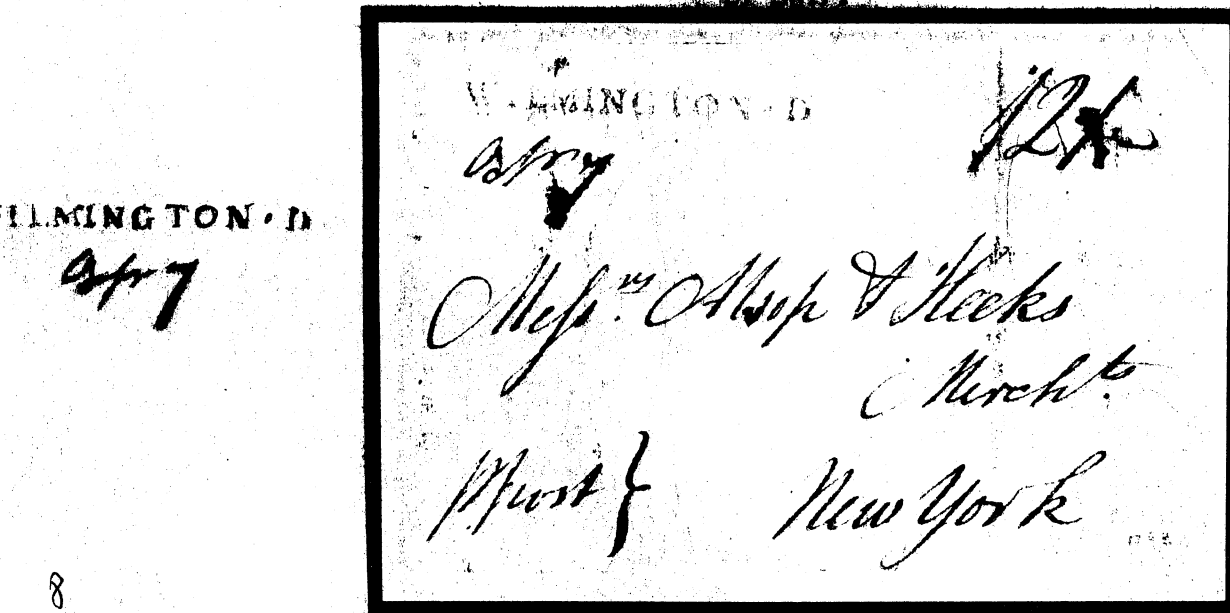 ILMINGTON · D
Apr 7
8
WILMINGTON · D
Apr 7
12
Messrs. Alsop & Hecks
Merchts.
New York